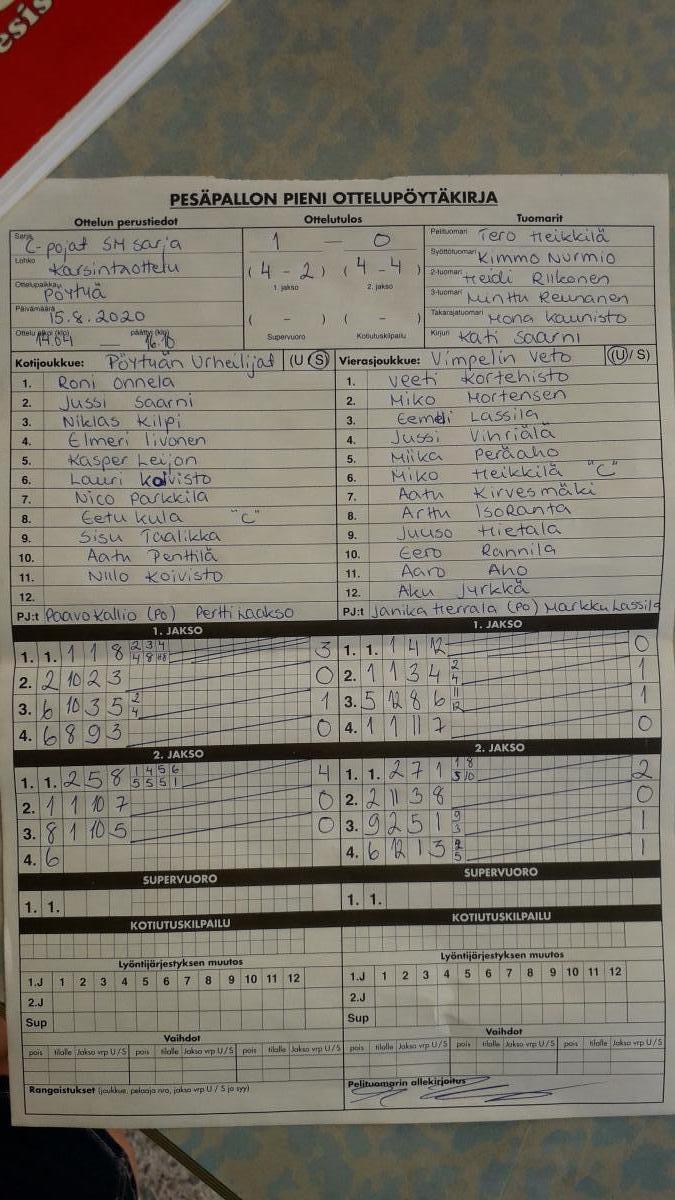 esis
PESÄPALLON PIENI OTTELUPÖYTÄKIRJA
Ottelun perustiedot
Sarja C-pojat SM sarja
Lohko Karsintaottelu
Ottelupaikka Pöytyä
Päivämäärä 15.8.2020
Ottelu alkoi (klo) 14.04 — päättyi (klo) 16.10
Ottelutulos
1 — 0
(4 - 2) (4 - 4)
1. jakso 2. jakso
( - ) ( - )
Supervuoro Kotiutuskilpailu
Tuomarit
Pelituomari Tero Heikkilä
Syöttötuomari Kimmo Nurmio
2-tuomari Heidi Riikonen
3-tuomari Minttu Reunanen
Takarajatuomari Mona Kaunisto
Kirjuri Kati Saarni
Kotijoukkue: Pöytyän Urheilijat (U / S)
1. Roni Onnela
2. Jussi Saarni
3. Niklas Kilpi
4. Elmeri Iivonen
5. Kasper Leijon
6. Lauri Koivisto
7. Nico Parkkila
8. Eetu Kula "C"
9. Sisu Taalikka
10. Aatu Penttilä
11. Niilo Koivisto
12.
PJ:t Paavo Kallio (PO) Pertti Laakso
Vierasjoukkue: Vimpelin Veto (U / S)
1. Veeti Kortehisto
2. Miko Mortensen
3. Eemeli Lassila
4. Jussi Vihriälä
5. Miika Peräaho
6. Miko Heikkilä "C"
7. Aatu Kirvesmäki
8. Arttu Isoranta
9. Juuso Hietala
10. Eero Rannila
11. Aaro Aho
12. Aku Jyrkkä
PJ:t Janika Herrala (PO) Markku Lassila
1. JAKSO
1. 1. 1 1 8 2 3 4 3
2. 2 10 2 3 0
3. 6 10 3 5 2 4 1
4. 6 8 9 3 0
1. JAKSO
1. 1. 1 4 12 0
2. 1 1 3 4 2 4 1
3. 5 12 8 6 11 12 1
4. 1 1 11 7 0
2. JAKSO
1. 1. 2 5 8 1 4 5 6 5 5 5 1 4
2. 1 1 10 7 0
3. 8 1 10 5 0
4. 6
2. JAKSO
1. 1. 2 7 1 1 8 5 10 2
2. 2 11 3 8 0
3. 9 2 5 1 9 3 1
4. 6 12 1 3 2 5 1
SUPERVUORO
1. 1.
KOTIUTUSKILPAILU
Lyöntijärjestyksen muutos
1.J 1 2 3 4 5 6 7 8 9 10 11 12
2.J
Sup
Vaihdot
pois tilalle Jakso vrp U / S pois tilalle Jakso vrp U / S pois tilalle Jakso vrp U / S
Rangaistukset (joukkue, pelaaja nro, jakso vrp U / S ja syy)
SUPERVUORO
1. 1.
KOTIUTUSKILPAILU
Lyöntijärjestyksen muutos
1.J 1 2 3 4 5 6 7 8 9 10 11 12
2.J
Sup
Vaihdot
pois tilalle Jakso vrp U / S pois tilalle Jakso vrp U / S pois tilalle Jakso vrp U / S
Pelituomarin allekirjoitus